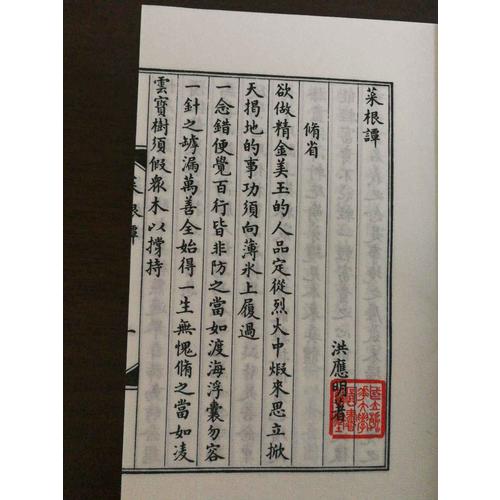 菜根譚
洪應明著
脩省
欲做精金美玉的人品定從烈火中煅來思立掀
天揭地的事功須向薄氷上履過
一念錯便覺百行皆非防之當如渡海浮囊勿容
一針之罅漏萬善全始得一生無愧脩之當如凌
雲寶樹須假衆木以撐持
菜根譚
一